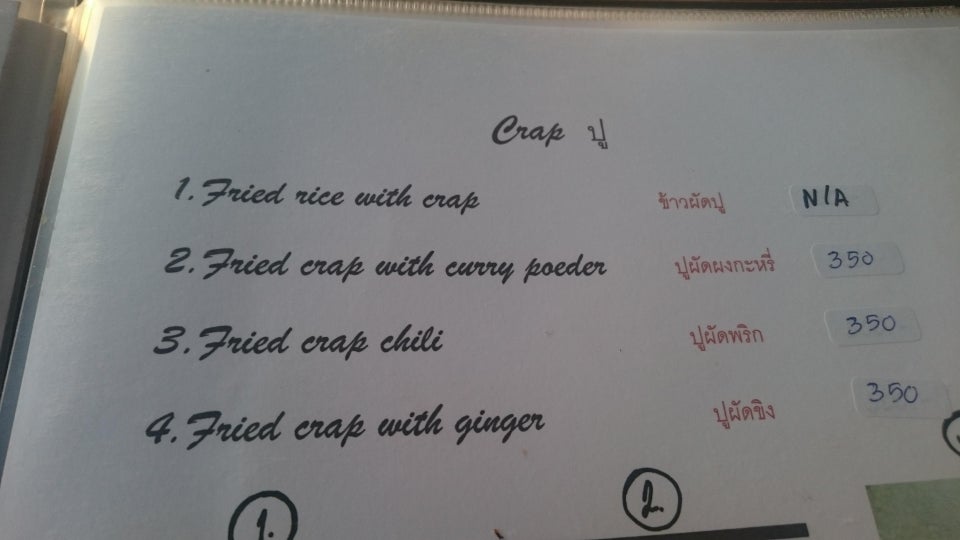 Crap ปู
1. Fried rice with crap ข้าวผัดปู N/A
2. Fried crap with curry poeder ปูผัดผงกะหรี่ 350
3. Fried crap chili ปูผัดพริก 350
4. Fried crap with ginger ปูผัดขิง 350
1. 2.